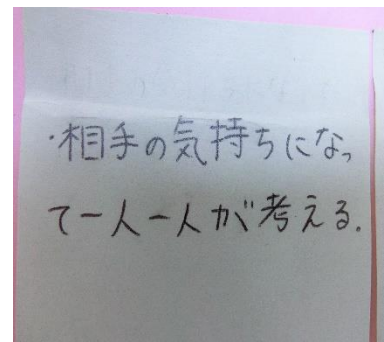 ・相手の気持ちになっ
て一人一人が考える.